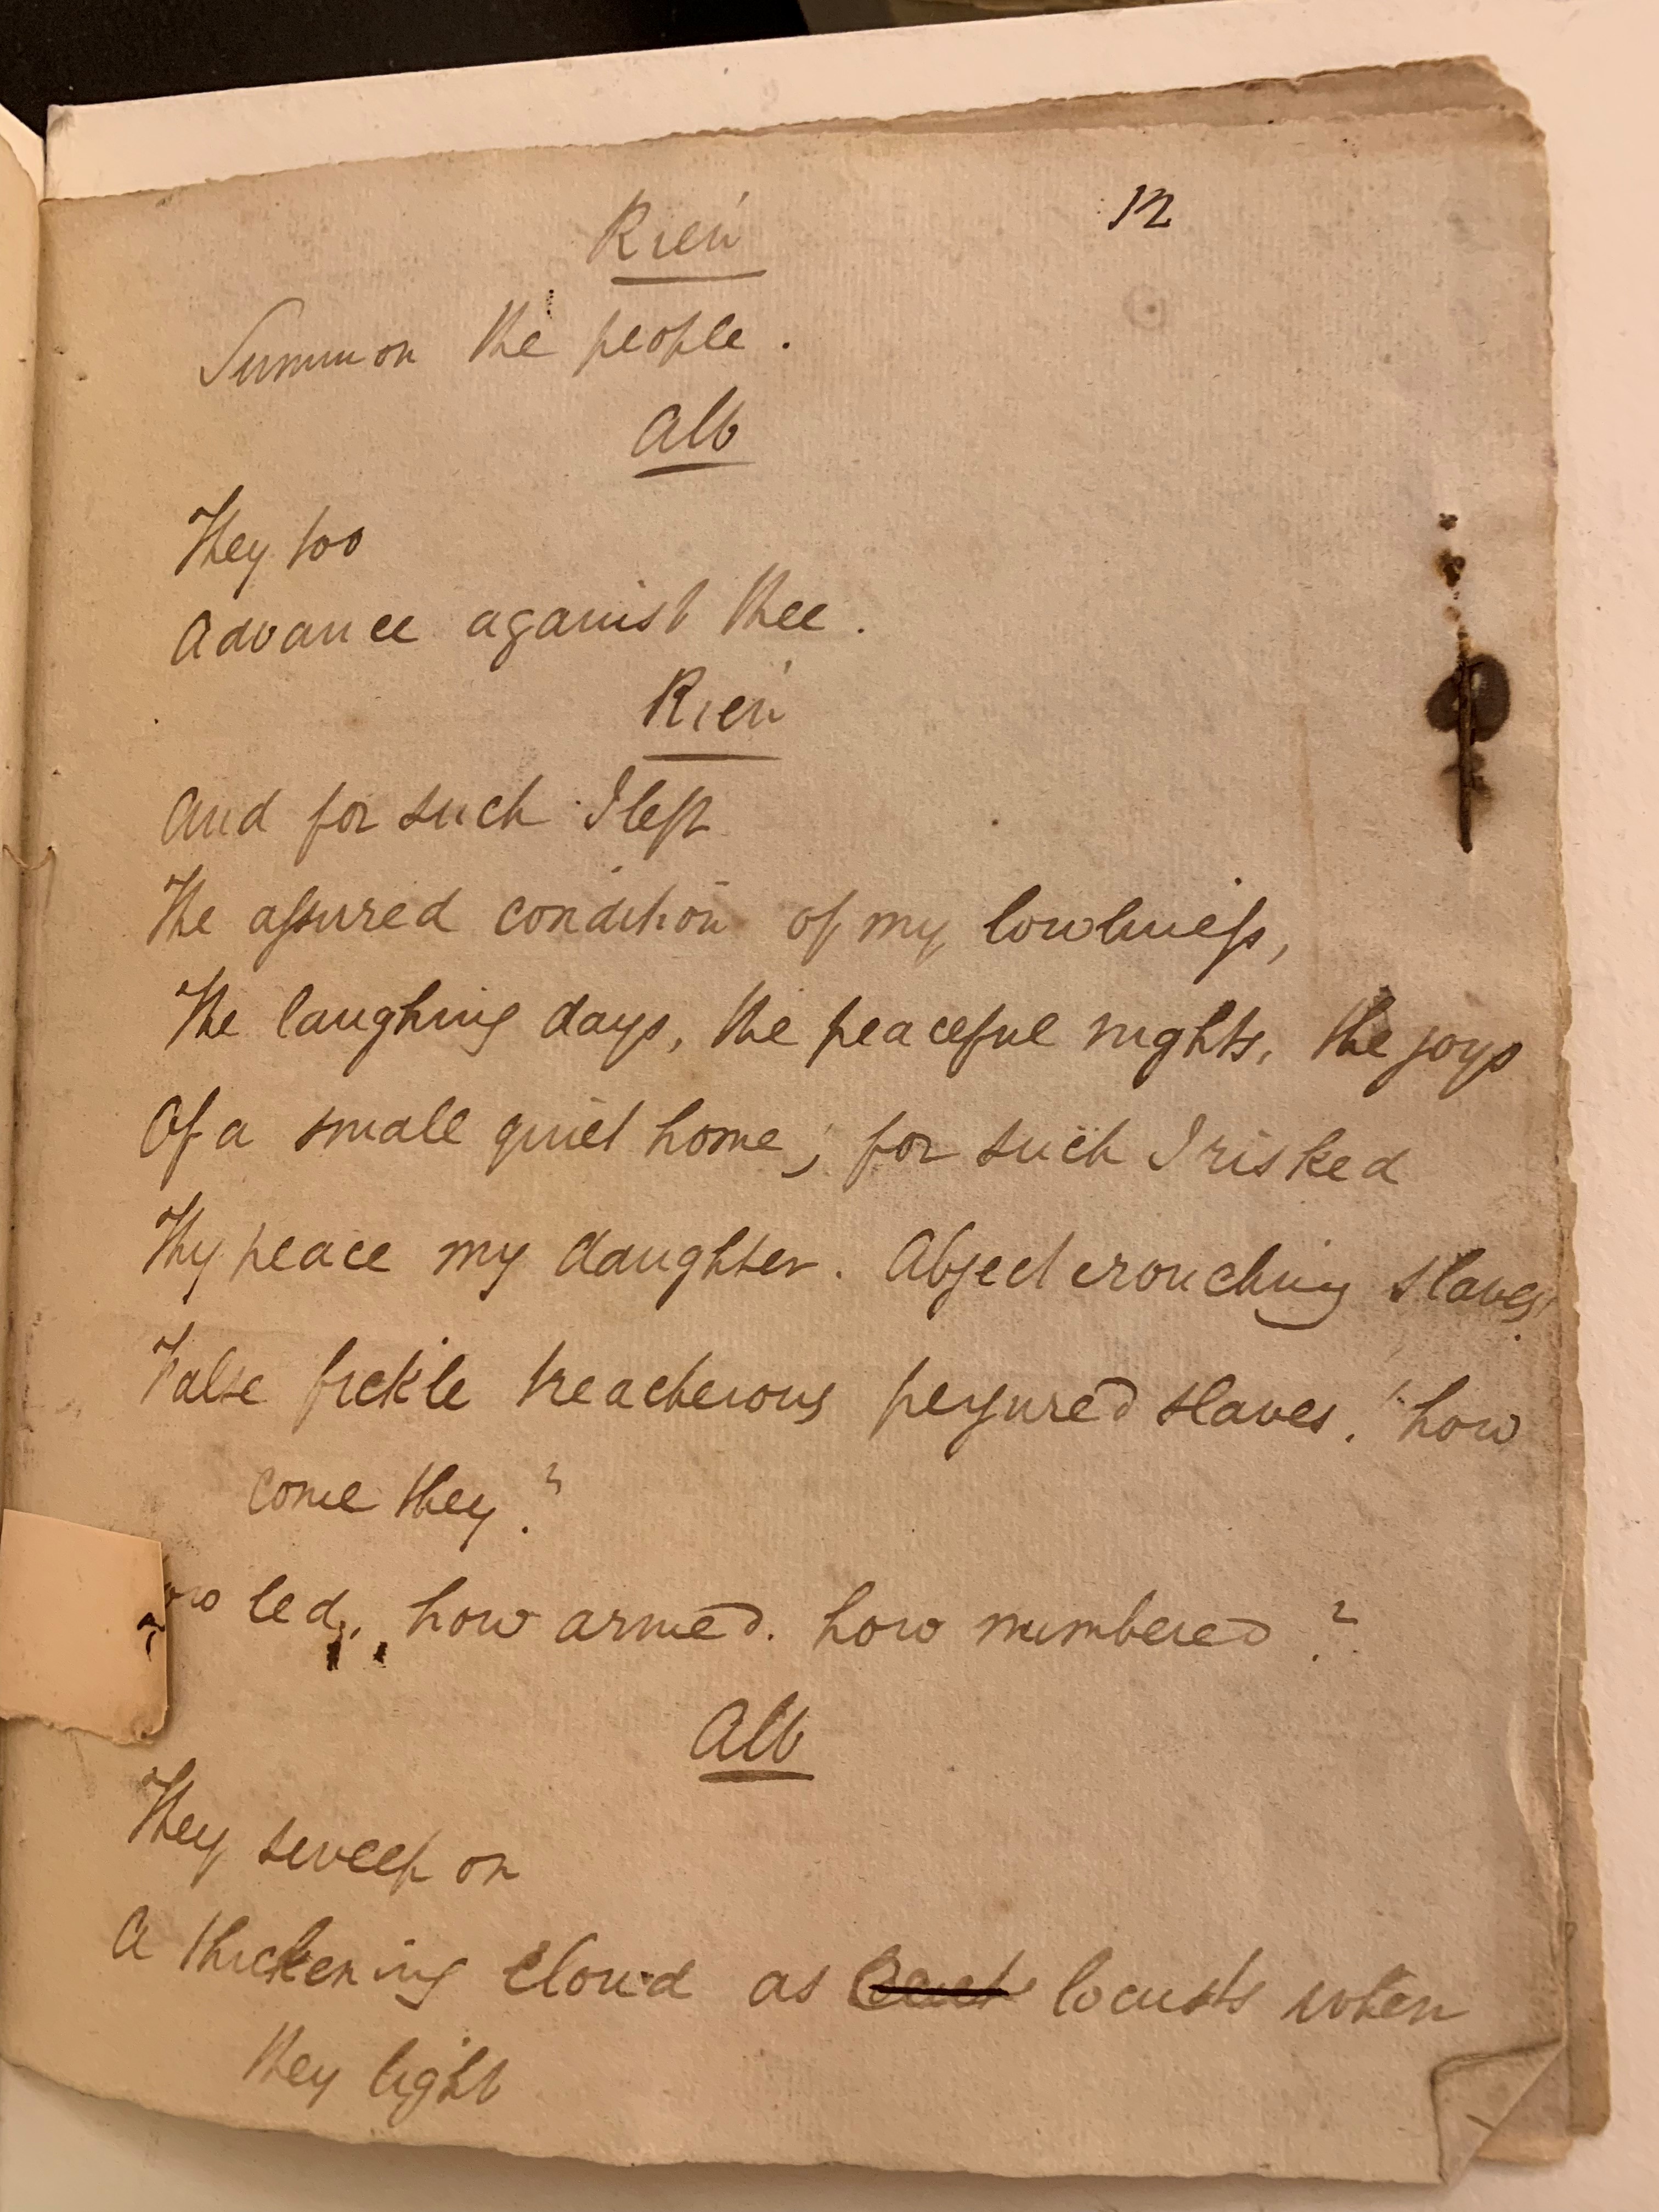 12
Rien
Summon the people.
Alb
They too
Advance against thee.
Rien
And for such I left
The assured condition of my lowliness,
The laughing days, the peaceful nights, the joys
Of a small quiet home; for such I risked
Thy peace my daughter. Abject crouching slaves!
False fickle treacherous perjured slaves! how
come they?
led, how armed. how numbered?
Alb
They sweep on
A thickening cloud as locusts when
they light